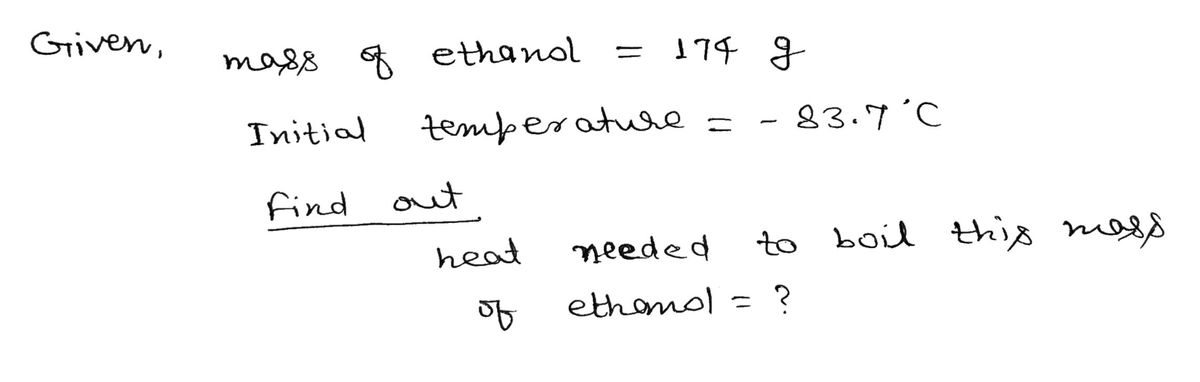 Given,
mass of ethanol = 174 g
Initial temperature = - 83.7 °C
find out
heat needed to boil this mass
of ethanol = ?